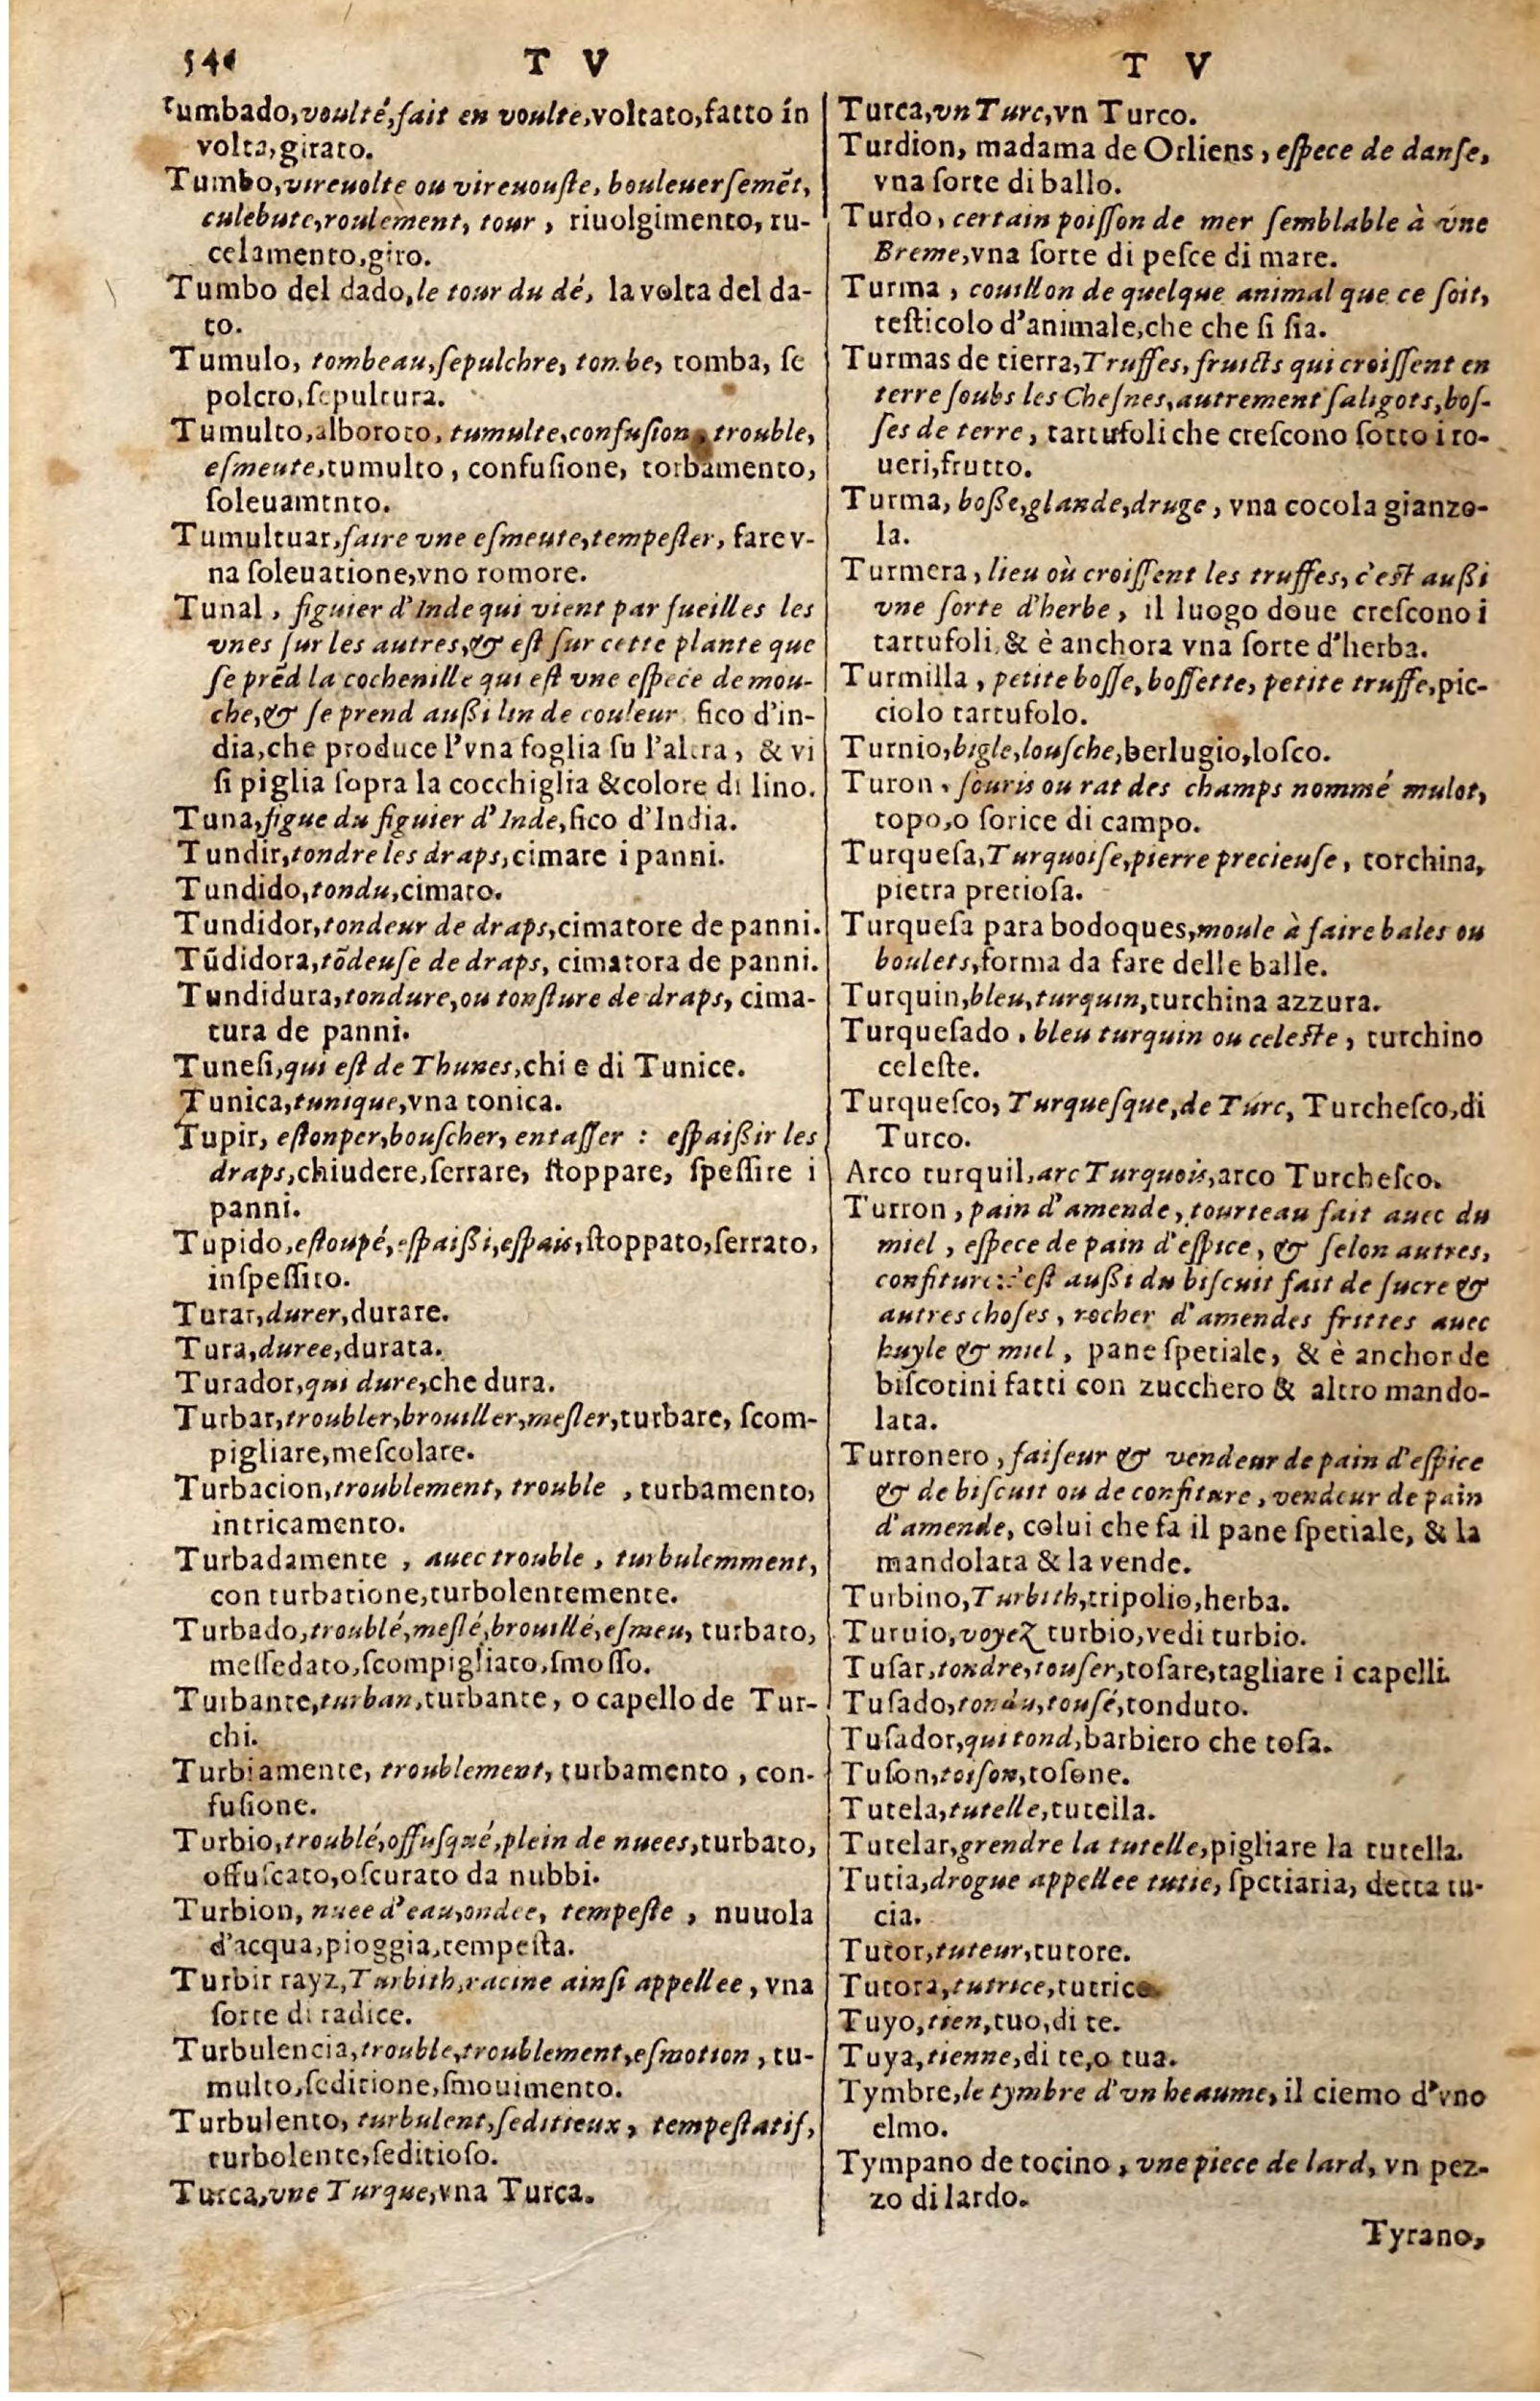 546 T V
Tumbado, voulté, fait en voulte, voltato, fatto in
volta, girato.
Tumbo, virevolte ou vireuouſte, bouleuerſemẽt,
culebute, roulement, tour, riuolgimento, ru-
celamento, giro.
Tumbo del dado, le tour du dé, la volta del da-
to.
Tumulo, tombeau, ſepulchre, tombe, tomba, ſe
polcro, ſepultura.
Tumulto, alboroto, tumulte, confuſion, trouble,
eſmeute, tumulto, confuſione, torbamento,
ſoleuamtnto.
Tumultuar, faire vne eſmeute, tempeſter, fare v-
na ſoleuatione, vno romore.
Tunal, figuier d'Inde qui vient par fueilles les
vnes ſur les autres, & eſt ſur cette plante que
ſe prẽd la cochenille qui eſt vne eſpece de mou-
che, & ſe prend außi lin de couleur fico d'in-
dia, che produce l'vna foglia ſu l'altra, & vi
ſi piglia ſopra la cocchiglia & colore di lino.
Tuna, figue du figuier d'Inde, fico d'India.
Tundir, tondre les draps, cimare i panni.
Tundido, tondu, cimato.
Tundidor, tondeur de draps, cimatore de panni.
Tũdidora, tõdeuſe de draps, cimatora de panni.
Tundidura, tondure, ou tonſture de draps, cima-
tura de panni.
Tuneſi, qui eſt de Thunes, chi e di Tunice.
Tunica, tunique, vna tonica.
Tupir, eſtonper, bouſcher, entaſſer : eſpaißir les
draps, chiudere, ſerrare, ſtoppare, ſpeſſire i
panni.
Tupido, eſtoupé, eſpaißi, eſpais, ſtoppato, ſerrato,
inſpeſſito.
Turar, durer, durare.
Tura, duree, durata.
Turador, qui dure, che dura.
Turbar, troubler, brouiller, meſler, turbare, ſcom-
pigliare, meſcolare.
Turbacion, troublement, trouble, turbamento,
intricamento.
Turbadamente, auec trouble, turbulemment,
con turbatione, turbolentemente.
Turbado, troublé, meſlé, brouillé, eſmeu, turbato,
meſſedato, ſcompigliato, ſmoſſo.
Turbante, turban, turbante, o capello de Tur-
chi.
Turbiamente, troublement, turbamento, con-
fuſione.
Turbio, troublé, offuſqué, plein de nuees, turbato,
offuſcato, oſcurato da nubbi.
Turbion, nuee d'eau, ondee, tempeſte, nuuola
d'acqua, pioggia, tempeſta.
Turbit rayz, Turbith, racine ainſi appellee, vna
ſorte di radice.
Turbulencia, trouble, troublement, eſmotion, tu-
multo, ſeditione, ſmouimento.
Turbulento, turbulent, ſeditieux, tempeſtatif,
turbolente, ſeditioſo.
Turca, vne Turque, vna Turca.
T V
Turca, vn Turc, vn Turco.
Turdion, madama de Orliens, eſpece de danſe,
vna ſorte di ballo.
Turdo, certain poiſſon de mer ſemblable à vne
Breme, vna ſorte di peſce di mare.
Turma, couillon de quelque animal que ce ſoit,
teſticolo d'animale, che che ſi ſia.
Turmas de tierra, Truffes, fruicts qui croiſſent en
terre ſoubs les Cheſnes, autrement ſaligots, boſ-
ſes de terre, tartufoli che creſcono ſotto i ro-
ueri, frutto.
Turma, boße, glande, druge, vna cocola gianzo-
la.
Turmera, lieu où croiſſent les truffes, c'eſt außi
vne ſorte d'herbe, il luogo doue creſcono i
tartufoli, & è anchora vna ſorte d'herba.
Turmilla, petite boſſe, boſſette, petite truffe, pic-
ciolo tartufolo.
Turnio, bigle, louſche, berlugio, loſco.
Turon, ſouris ou rat des champs nommé mulot,
topo, o ſorice di campo.
Turqueſa, Turquoiſe, pierre precieuſe, torchina,
pietra pretioſa.
Turqueſa para bodoques, moule à faire bales ou
boulets, forma da fare delle balle.
Turquin, bleu, turquin, turchina azzura.
Turqueſado, bleu turquin ou celeſte, turchino
celeſte.
Turqueſco, Turqueſque, de Turc, Turcheſco, di
Turco.
Arco turquil, arc Turquois, arco Turcheſco.
Turron, pain d'amende, tourteau fait auec du
miel, eſpece de pain d'eſpice, & ſelon autres,
confiture: c'eſt außi du biſcuit fait de ſucre &
autres choſes, rocher d'amendes frittes auec
huyle & miel, pane ſpetiale, & è anchor de
biſcotini fatti con zucchero & altro mando-
lata.
Turronero, faiſeur & vendeur de pain d'eſpice
& de biſcuit ou de confiture, vendeur de pain
d'amende, colui che fa il pane ſpetiale, & la
mandolata & la vende.
Turbino, Turbith, tripolio, herba.
Turuio, voyez turbio, vedi turbio.
Tuſar, tondre, touſer, toſare, tagliare i capelli.
Tuſado, tondu, touſé, tonduto.
Tuſador, qui tond, barbiero che toſa.
Tuſon, toiſon, toſone.
Tutela, tutelle, tutella.
Tutelar, grendre la tutelle, pigliare la tutella.
Tutia, drogue appellee tutie, ſpetiaria, detta tu-
cia.
Tutor, tuteur, tutore.
Tutora, tutrice, tutrice.
Tuyo, tien, tuo, di te.
Tuya, tienne, di te, o tua.
Tymbre, le tymbre d'vn heaume, il ciemo d'vno
elmo.
Tympano de tocino, vne piece de lard, vn pez-
zo di lardo.
Tyrano,